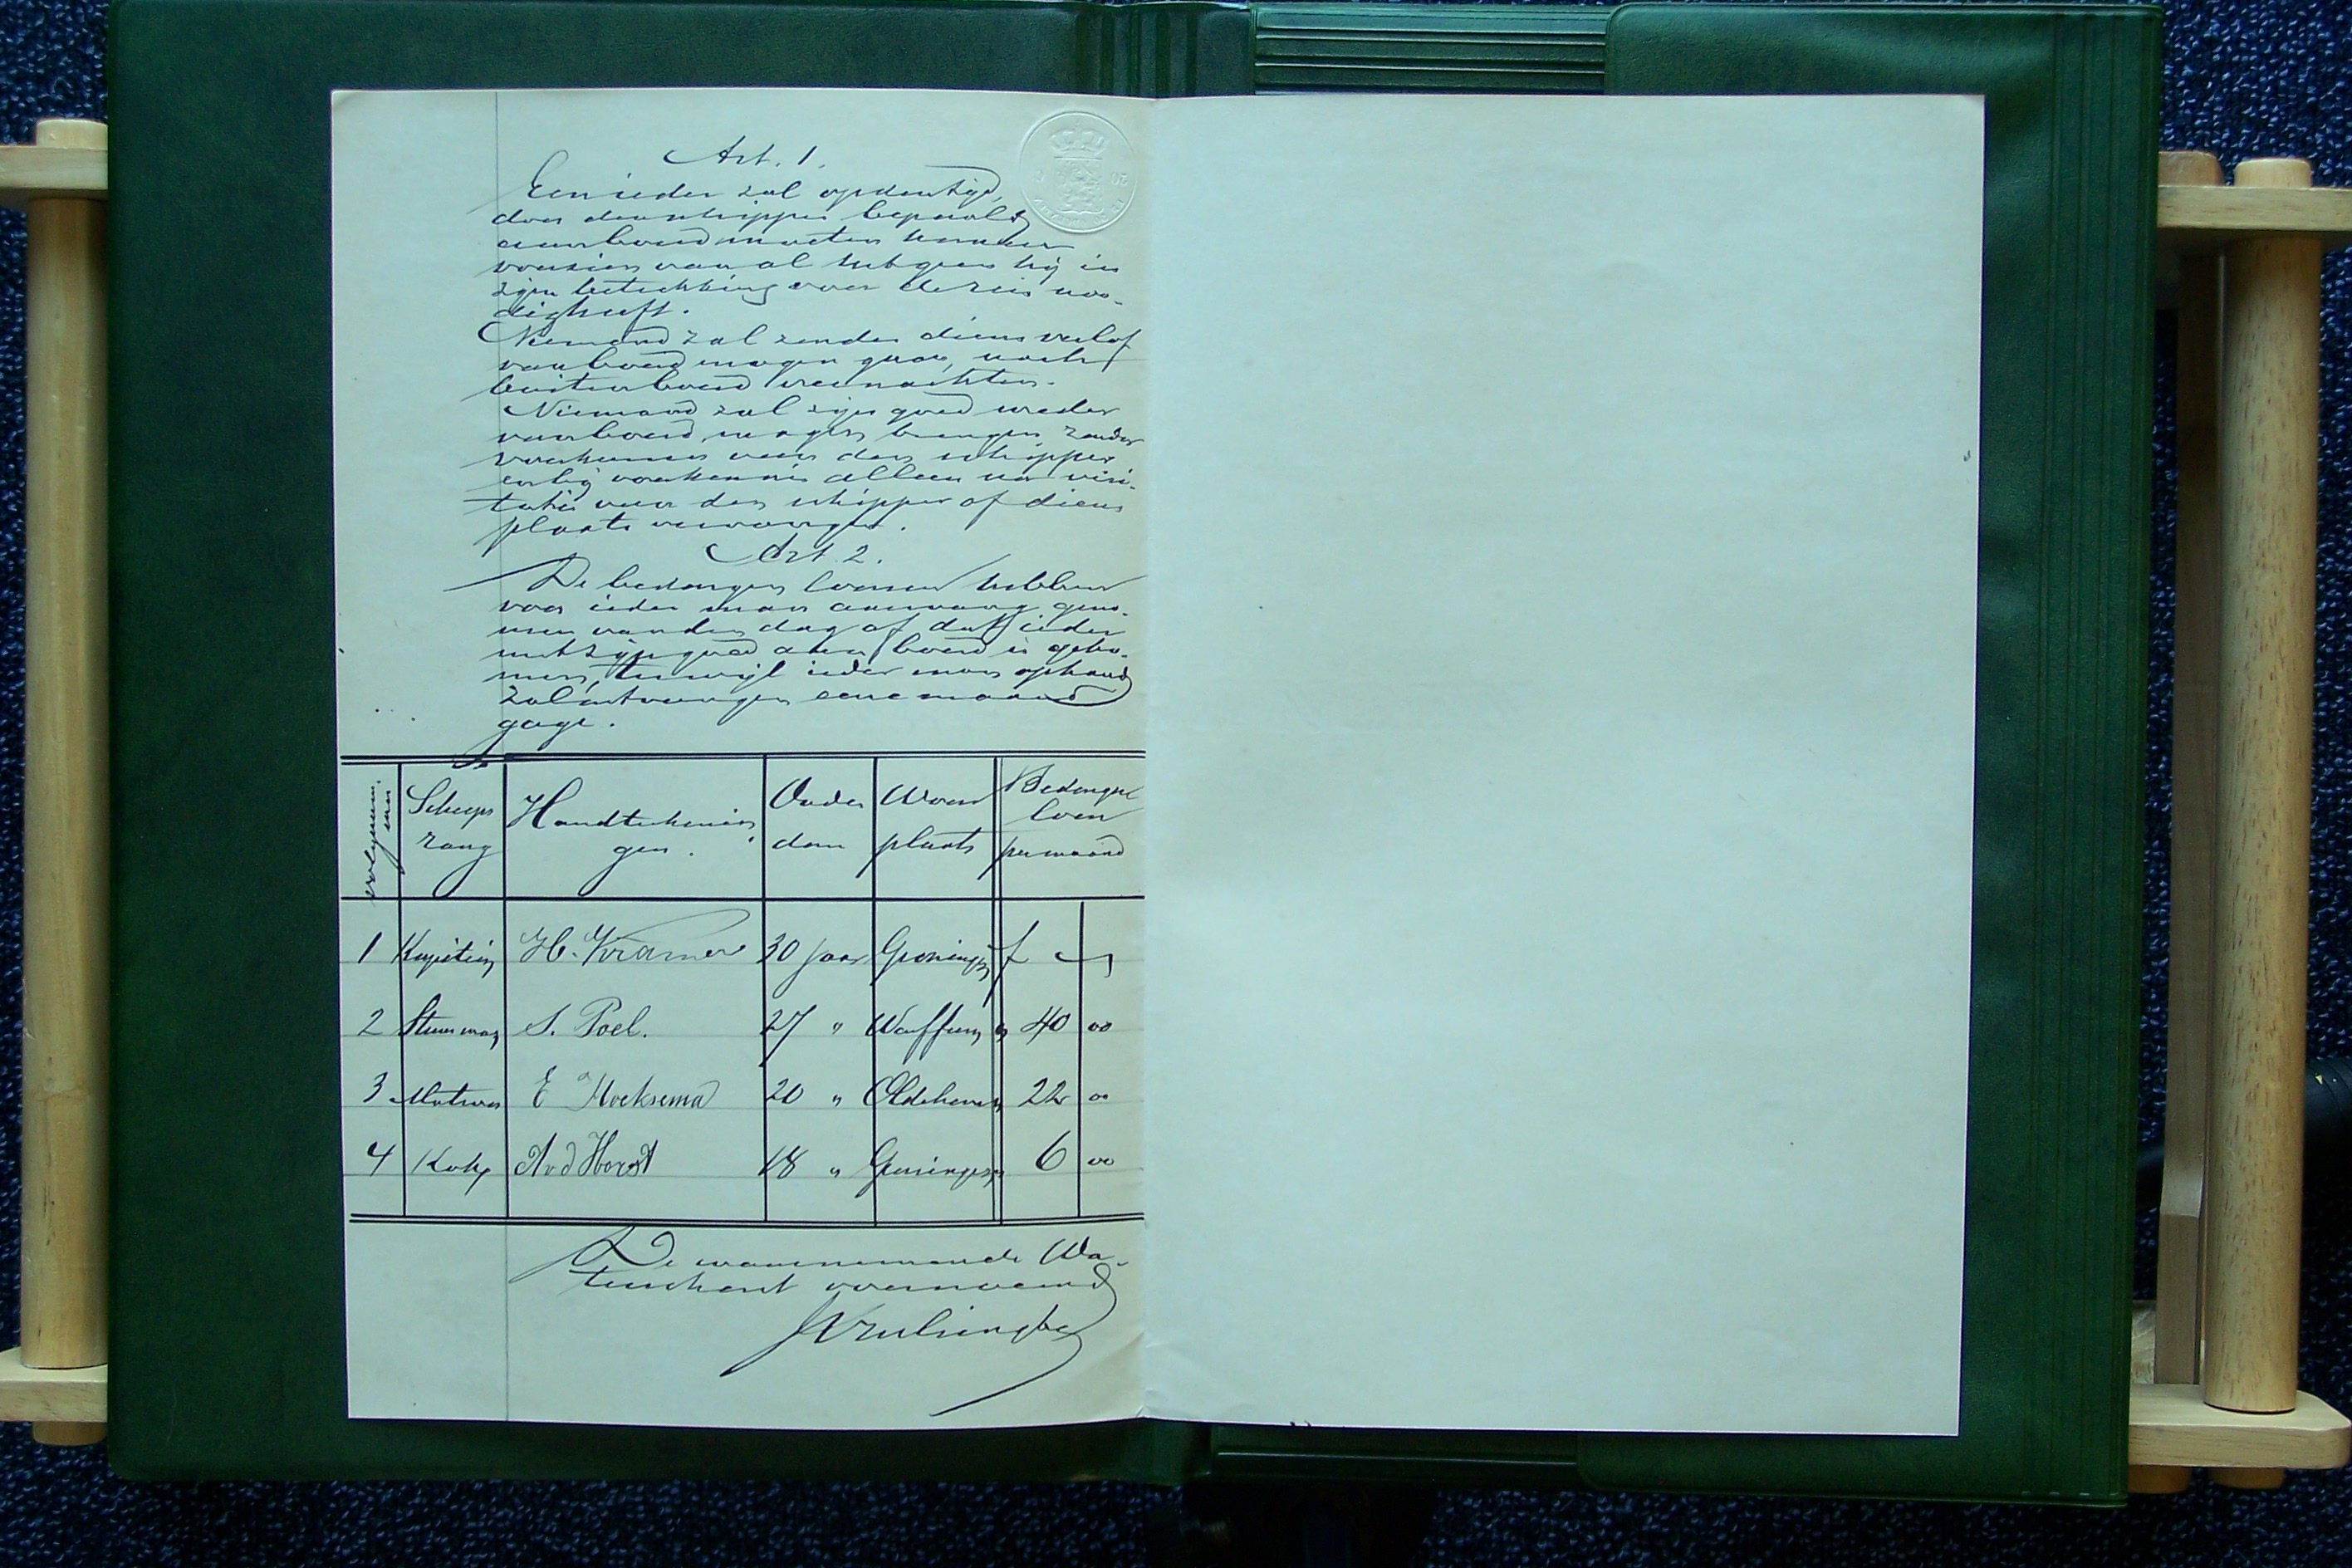 Art. 1.
Een ieder zal op den tijd,
door den schipper bepaald
aan boord moeten komen
voorzien van al hetgeen hij in
zijn betrekking voor de reis noo-
dig heeft.
Niemand zal zonder diens verlof
van boord mogen gaan, noch
buiten boord vernachten.
Niemand zal zijn goed weder
van boord mogen brengen zonder
voorkennis van den schipper
voorkennis alleen na visi-
tatie van den schipper of diens
plaatsvervanger.
Art. 2.
De bedongen loonen hebben
voor ieder man aanvang geno-
men van den dag af dat ieder
met zijn goed aan boord is geko-
men, terwijl ieder man op hand
zal ontvangen eene maand
gage.
volgnum-
mer
Scheeps
rang
Handteekenin
gen.
Ouder
dom
Woon
plaats
Bedongen
loon
per maand
1 Kapitein H. Kramer 30 jaar Groningen f —
2 Stuurman S. Poel. 27 " Warffum " 40 00
3 Matroos E Hoeksema 20 " Oldehove " 22 00
4 Kok A v d Horst 18 " Groningen " 6 00
De waarnemende Wa-
terschout voornoemd